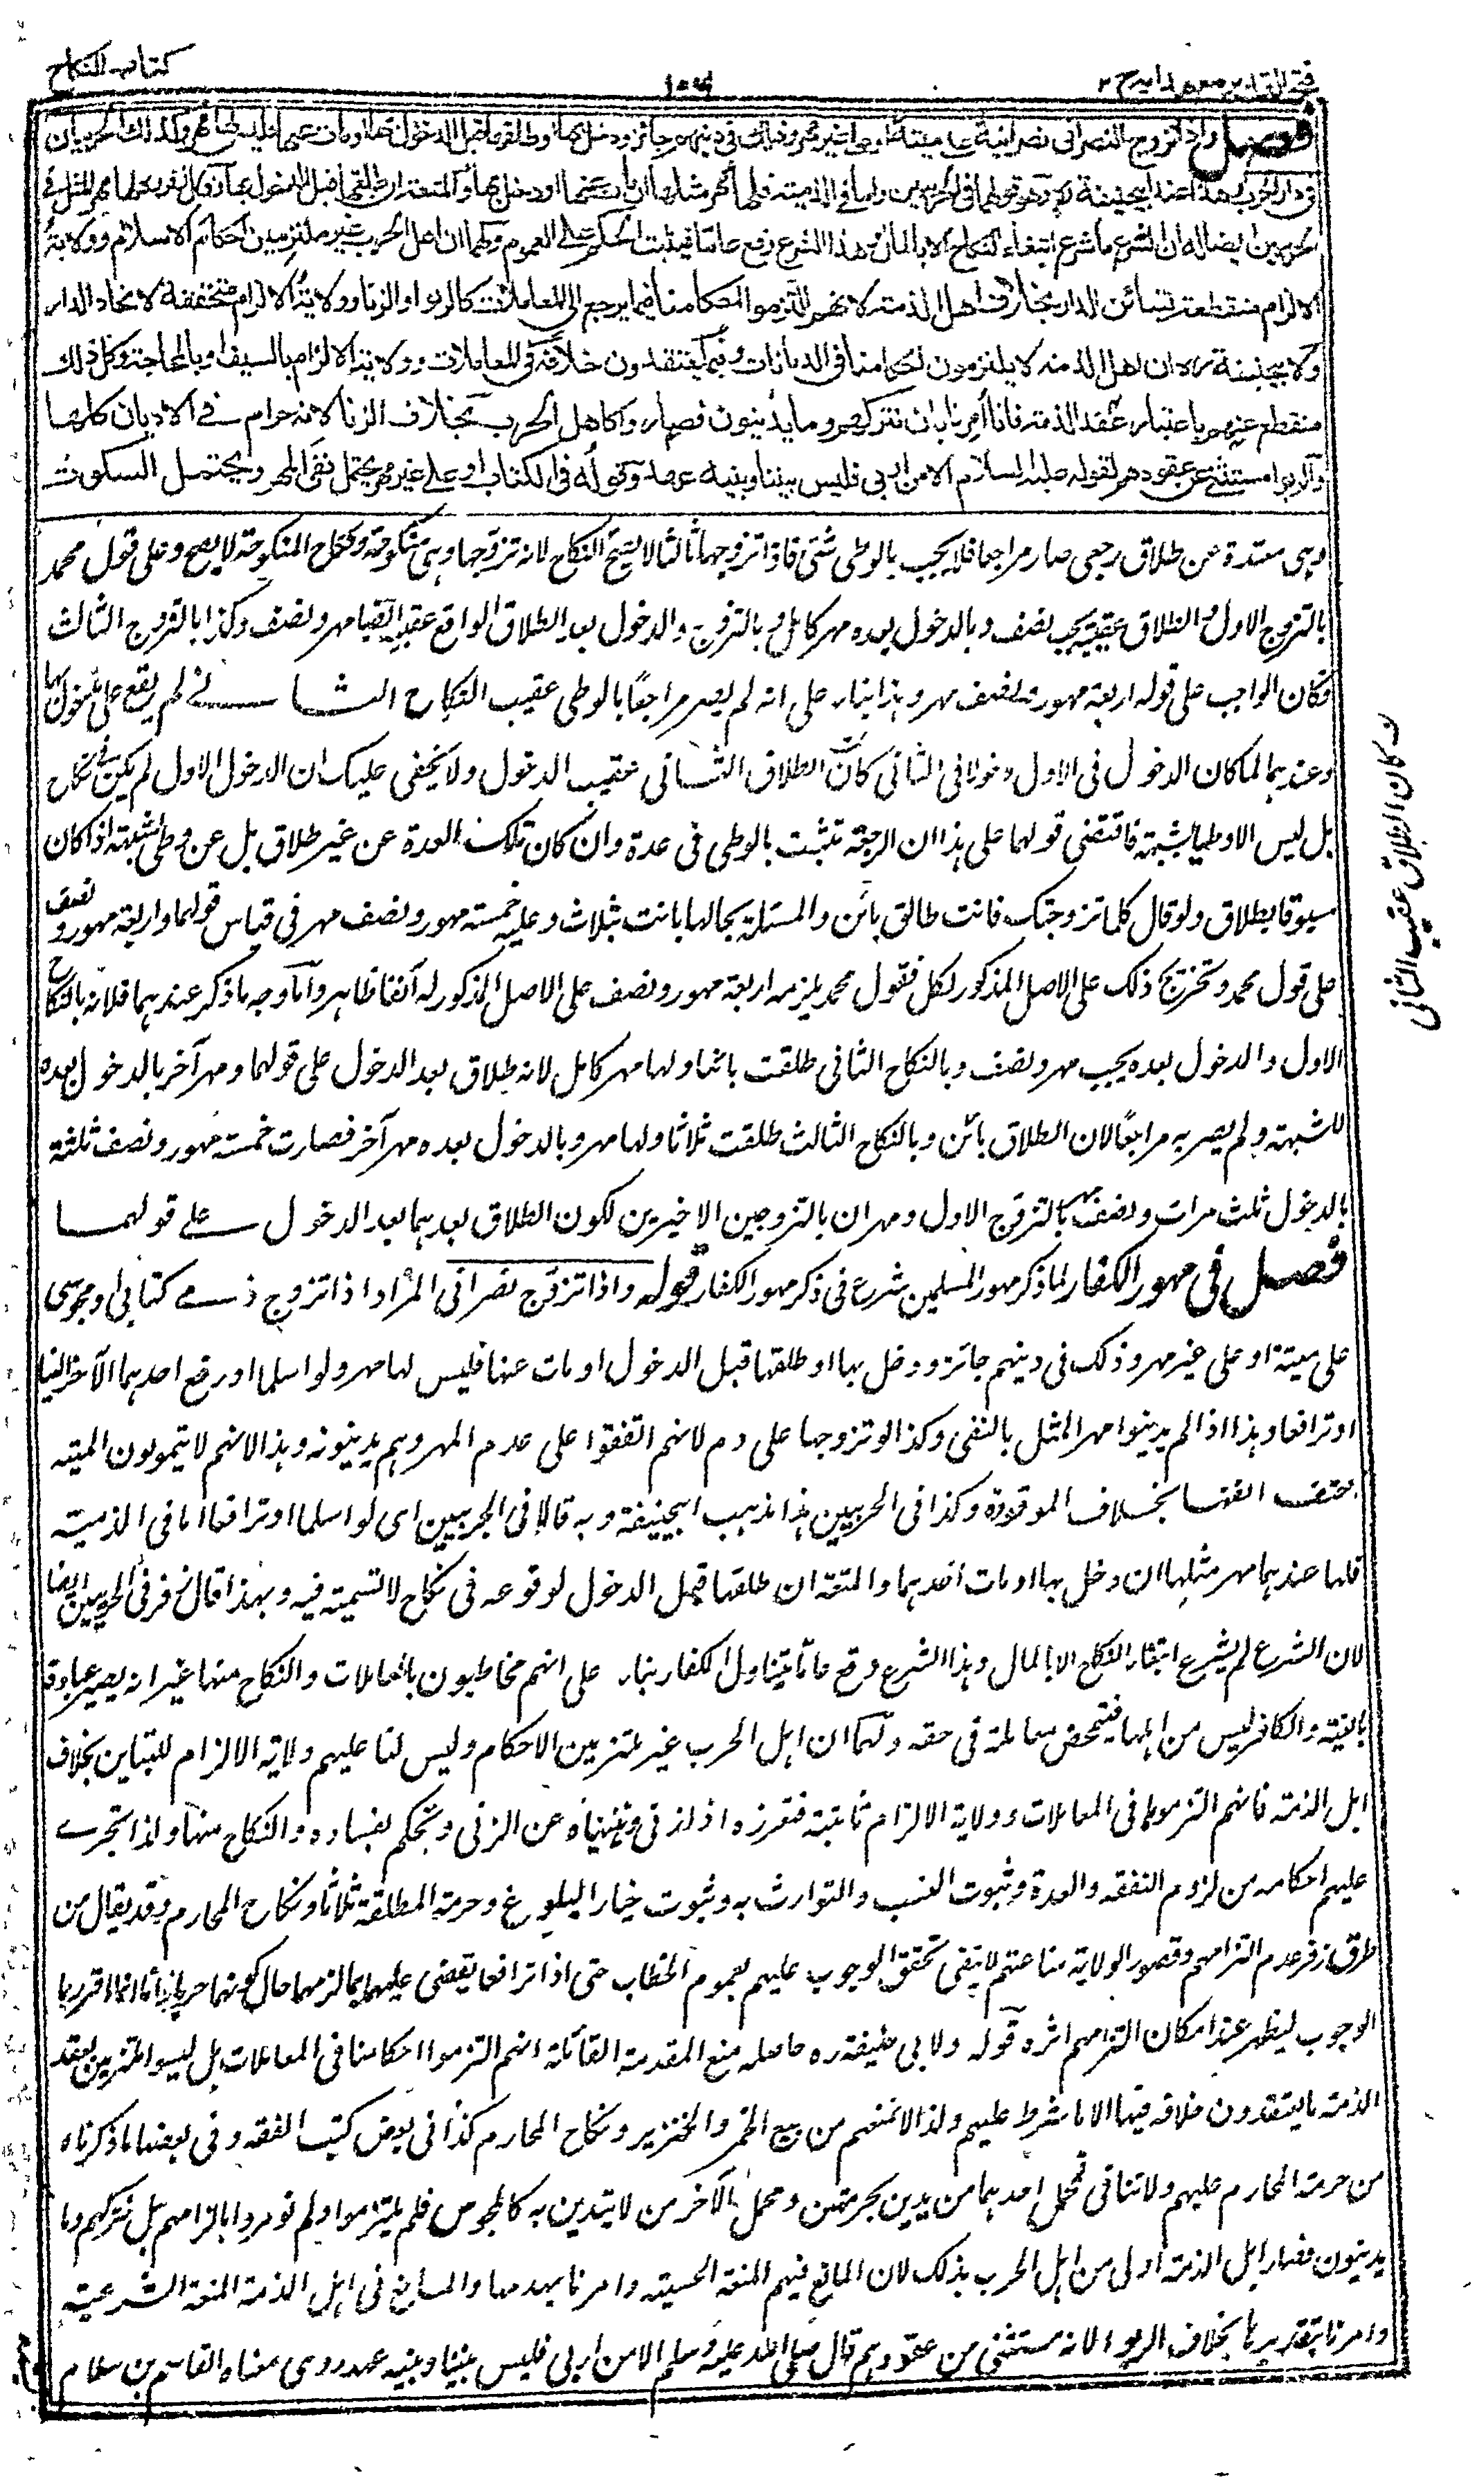 فتح القدير مع هدايه ج ٢
كتاب النكاح
فصل واذا تزوج النصراني نصرانية على ميتة او على غير مهر وذلك في دينهم جائز ودخل بها او طلقها قبل الدخول بها او مات عنها فليس لها مهر وكذلك الحربيان
في دار الحرب وهذا عند ابيحنيفة وهو قولهما في الحربيين واما في الذمية فلها مهر مثلها ان مات عنها او دخل بها والمتعة ان طلقها قبل الدخول بها وقال زفر لها مهر المثل في
الحربيين ايضا له ان الشرع ما شرع ابتغاء النكاح الا بالمال وهذا الشرع وقع عاما فيثبت الحكم على العموم ولهما ان اهل الحرب غير ملتزمين احكام الاسلام وولاية
الالزام منقطعة لتبائن الدار بخلاف اهل الذمة لانهم التزموا احكامنا فيما يرجع الى المعاملات كالربوا والزنا وولاية الالزام متحققة لاتحاد الدار
ولابيحنيفة ره ان اهل الذمة لا يلتزمون احكامنا في الديانات وفيما يعتقدون خلافه في المعاملات وولاية الالزام بالسيف او بالمحاجة وكل ذلك
منقطع عنهم باعتبار عقد الذمة فانا امرنا بان نتركهم وما يدينون فصاروا كاهل الحرب بخلاف الزنا لانه حرام في الاديان كلها
والربوا مستثنى عن عقودهم لقوله عليه السلام الا من اربى فليس بيننا وبينه عهد وقوله في الكتاب او على غير مهر يحتمل نفي المهر ويحتمل السكوت
وهي معتدة عن طلاق رجعي صار مراجعا فلا يجب بالوطى شئى فاذا تزوجها ثالثا لا يصح النكاح لانه تزوجها وهي منكوحة ونكاح المنكوحة لا يصح وعلى قول محمد
بالتزوج الاول والطلاق عقيبه يجب نصف وبالدخول بعده مهر كامل وبالتزوج والدخول بعد الطلاق الواقع عقبه ايضا مهر ونصف وكذا بالتزوج الثالث
فكان الواجب على قوله اربعة مهور ونصف مهر وهذا بناء على انه لم يصر مراجعا بالوطى عقيب النكاح الثانے لم يقع على مدخول بها
وعندهما لما كان الدخول في الاول دخولا في الثانى كان الطلاق الثانى عقيب الدخول ولا يخفى عليك ان الدخول الاول لم يكن في نكاح
بل ليس الا وطيا بشبهة فاقتضى قولهما على هذا ان الرجعة تثبت بالوطى في عدة وان كان تلك العدة عن غير طلاق بل عن وطى بشبهة اذا كان
مسبوقا بطلاق ولو قال كلما تزوجتك فانت طالق بائن والمسئلة بحالها بانت بثلاث وعليه خمسة مهور ونصف مهر في قياس قولهما واربعة مهور ونصف
على قول محمد وتخريج ذلك على الاصل المذكور لكل فقول محمد يلزمه اربعة مهور ونصف على الاصل المذكور له آنفا ظاهر واما وجه ما ذكر عندهما فلانه بالنكاح
الاول والدخول بعده يجب مهر ونصف وبالنكاح الثانى طلقت بائنا ولها مهر كامل لانه طلاق بعد الدخول على قولهما ومهر آخر بالدخول بعده
للشبهة ولم يصر به مراجعا لان الطلاق بائن وبالنكاح الثالث طلقت ثلاثا ولها مهر وبالدخول بعده مهر آخر فصارت خمسة مهور ونصف ثلثة
بالدخول ثلث مرات ونصف مهر بالتزوج الاول ومهران بالتزوجين الاخيرين لكون الطلاق بعدهما بعد الدخول على قولهما
فصل في مهور الكفار لما ذكر مهور المسلمين شرع في ذكر مهور الكفار قوله واذا تزوج نصرانى المراد اذا تزوج ذمے كتابى او مجوسى
على ميتة او على غير مهر وذلك في دينهم جائز ودخل بها او طلقها قبل الدخول او مات عنها فليس لها مهر ولو اسلما او رفع احدهما الآخر الينا
او ترافعا وهذا اذا لم يدينوا مهر المثل بالنفى وكذا لو تزوجها على دم لانهم اتفقوا على عدم المهر وهم يدينونه وهذا لانهم لا يتمولون الميتة
حتف انفها بخلاف الموقوذة وكذا في الحربيين هذا مذهب ابيحنيفة وبه قالا في الحربيين اى لو اسلما او ترافعا اما في الذمية
فلها عندهما مهر مثلها ان دخل بها او مات احدهما والمتعة ان طلقها قبل الدخول لوقوعه في نكاح لا تسمية فيه وبهذا قال زفر في الحربيين ايضا
لان الشرع لم يشرع ابتغاء النكاح الا بالمال وهذا الشرع وقع عاما يتناول الكفار بناء على انهم مخاطبون بالمعاملات والنكاح منها غير انه يصير عبادة
بالنية والكافر ليس من اهلها فتمحض معاملة في حقه ولهما ان اهل الحرب غير ملتزمين الاحكام وليس لنا عليهم ولاية الالزام للتباين بخلاف
اهل الذمة فانهم التزموها في المعاملات وولاية الالزام ثابتة فنعزره اذا زنى وننهاه عن الزنى ونحكم بفساده والنكاح منها ولذا تجرے
عليهم احكامه من لزوم النفقه والعدة وثبوت النسب والتوارث به وثبوت خيار البلوغ وحرمة المطلقة ثلاثا ونكاح المحارم وقد يقال من
طرف زفر عدم التزامهم وقصور الولاية منا عنهم لا ينفى تحقق الوجوب عليهم بعموم الخطاب حتى اذا ترافعا يقضى عليهما بما لزمهما حال كونهما حربا
الوجوب ليظهر عند امكان التزامهم اثره قوله ولابى حنيفة ره حاصله منع المقدمة القائلة انهم التزموا احكامنا في المعاملات بل ليسوا ملتزمين بعقد
الذمة ما يعتقدون خلافه فيها الا ما شرط عليهم ولذا لا نمنعهم من بيع الخمر والخنزير ونكاح المحارم كذا في بعض كتب الفقه وفي بعضها ما ذكرناه
من حرمة المحارم عليهم ولا تنافى فمحمل احدهما من يدين بحرمتهن ومحمل الآخر من لا يتدين به كالمجوس فلم يلتزموا ولم نومر بالزامهم بل نتركهم وما
يدينون فصار اهل الذمة اولى من اهل الحرب بذلك لان المانع فيهم المنعة الحسية وامرنا بهدمها والمانع في اهل الذمة المنعة الشرعية
وامرنا بتقريرها بخلاف الربوا لانه مستثنى من عقودهم قال صلى الله عليه وسلم الا من اربى فليس بيننا وبينه عهد وروى معناه القاسم بن سلام
كان الطلاق عقيب الثانى